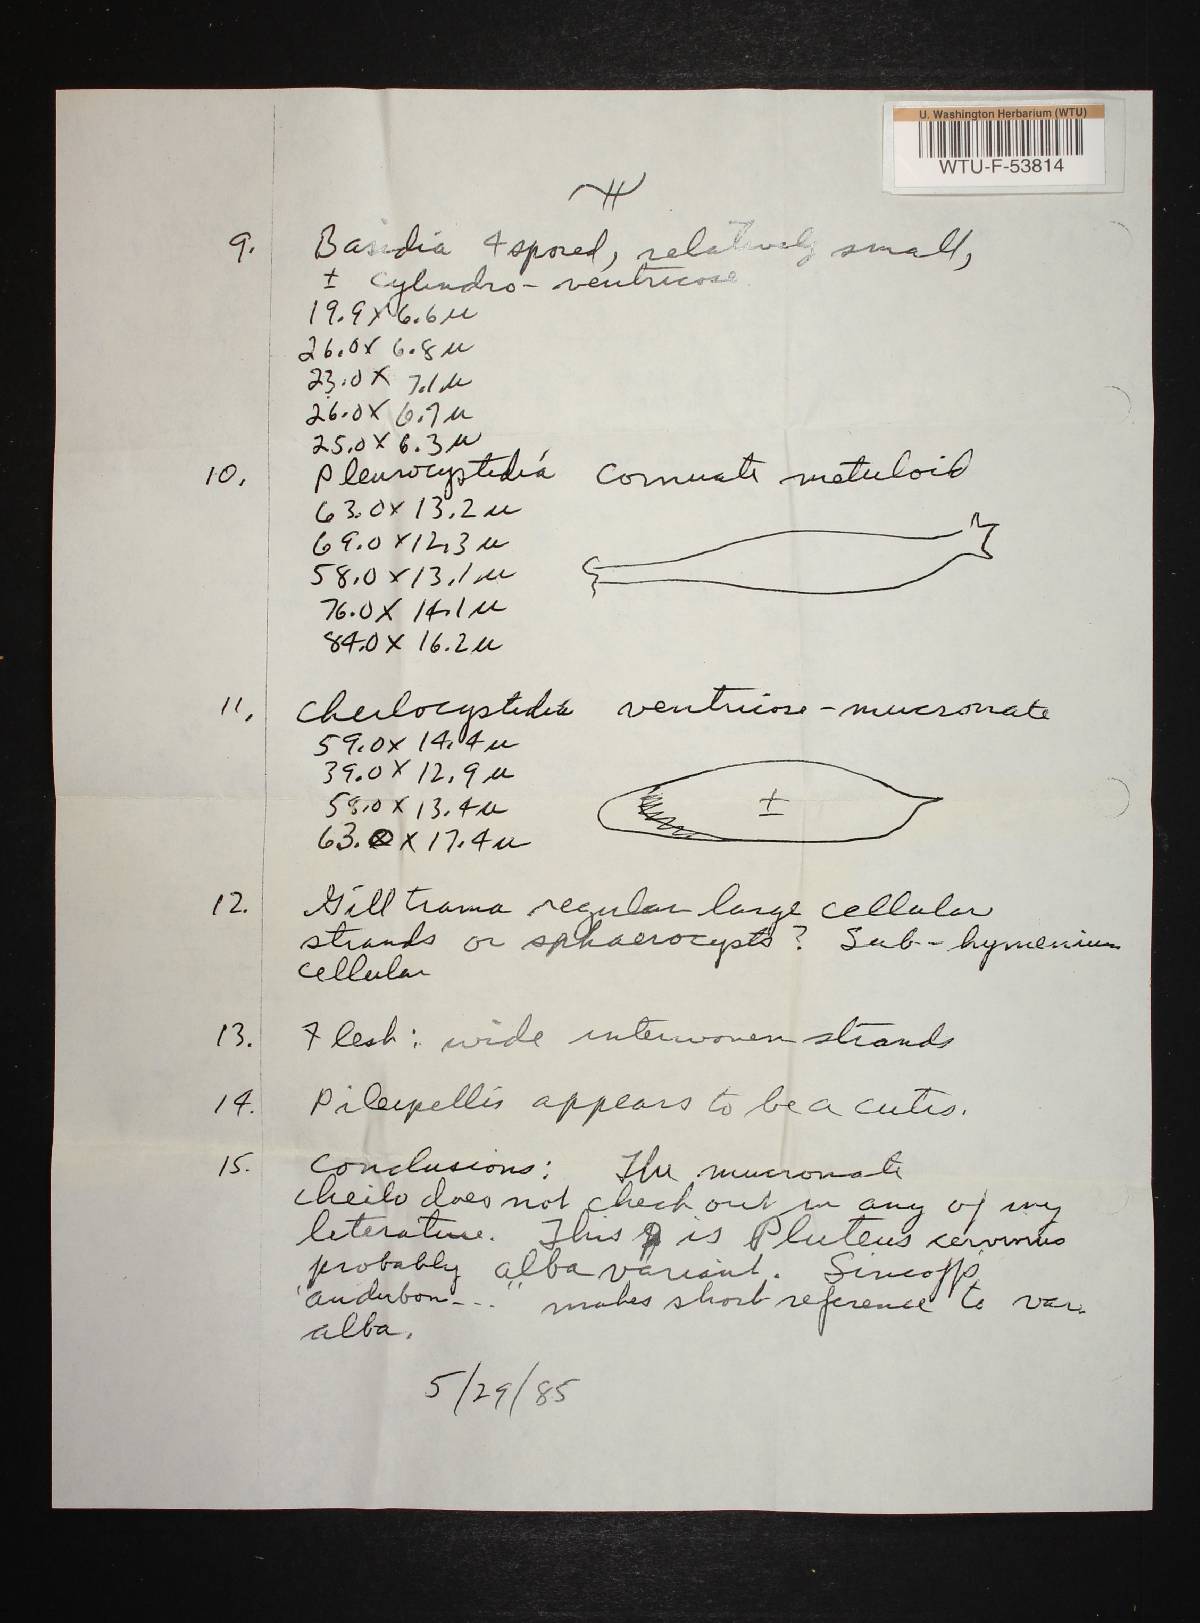 U. Washington Herbarium (WTU)
WTU-F-53814
II
9. Basidia 4 spored, relatively small,
± cylindro-ventricose
19.9 x 6.6 u
26.0 x 6.8 u
23.0 x 7.1 u
26.0 x 6.7 u
25.0 x 6.3 u
10. Pleurocystidia cornuate metuloid
63.0 x 13.2 u
69.0 x 12.3 u
58.0 x 13.1 u
76.0 x 14.1 u
84.0 x 16.2 u
11. Cheilocystidia ventricose-mucronate
59.0 x 14.4 u
39.0 x 12.9 u
58.0 x 13.4 u
±
63.0 x 17.4 u
12. Gill trama regular large cellular
strands or sphaerocysts? Sub-hymenium
cellular
13. Flesh: wide interwoven strands
14. Pileipellis appears to be a cutis.
15. Conclusions: The mucronate
cheilo does not check out in any of my
literature. This is Pluteus cervinus
probably alba variant. Sincoff's
"audubon--." makes short reference to var.
alba.
5/29/85